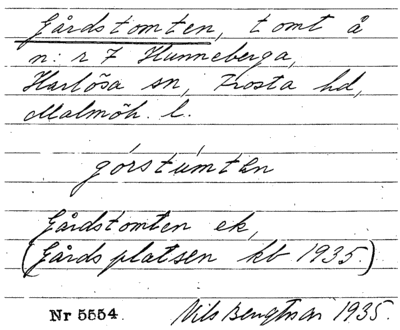 Gårdstomten, tomt å
n:r 7 Hunneberga,
Harlösa sn, Frosta hd,
Malmöh. l.
górstùmtɘn
Gårdstomten ek,
(Gårdsplatsen kb 1935.)
Nr 5554. Nils Bengtsson 1935.